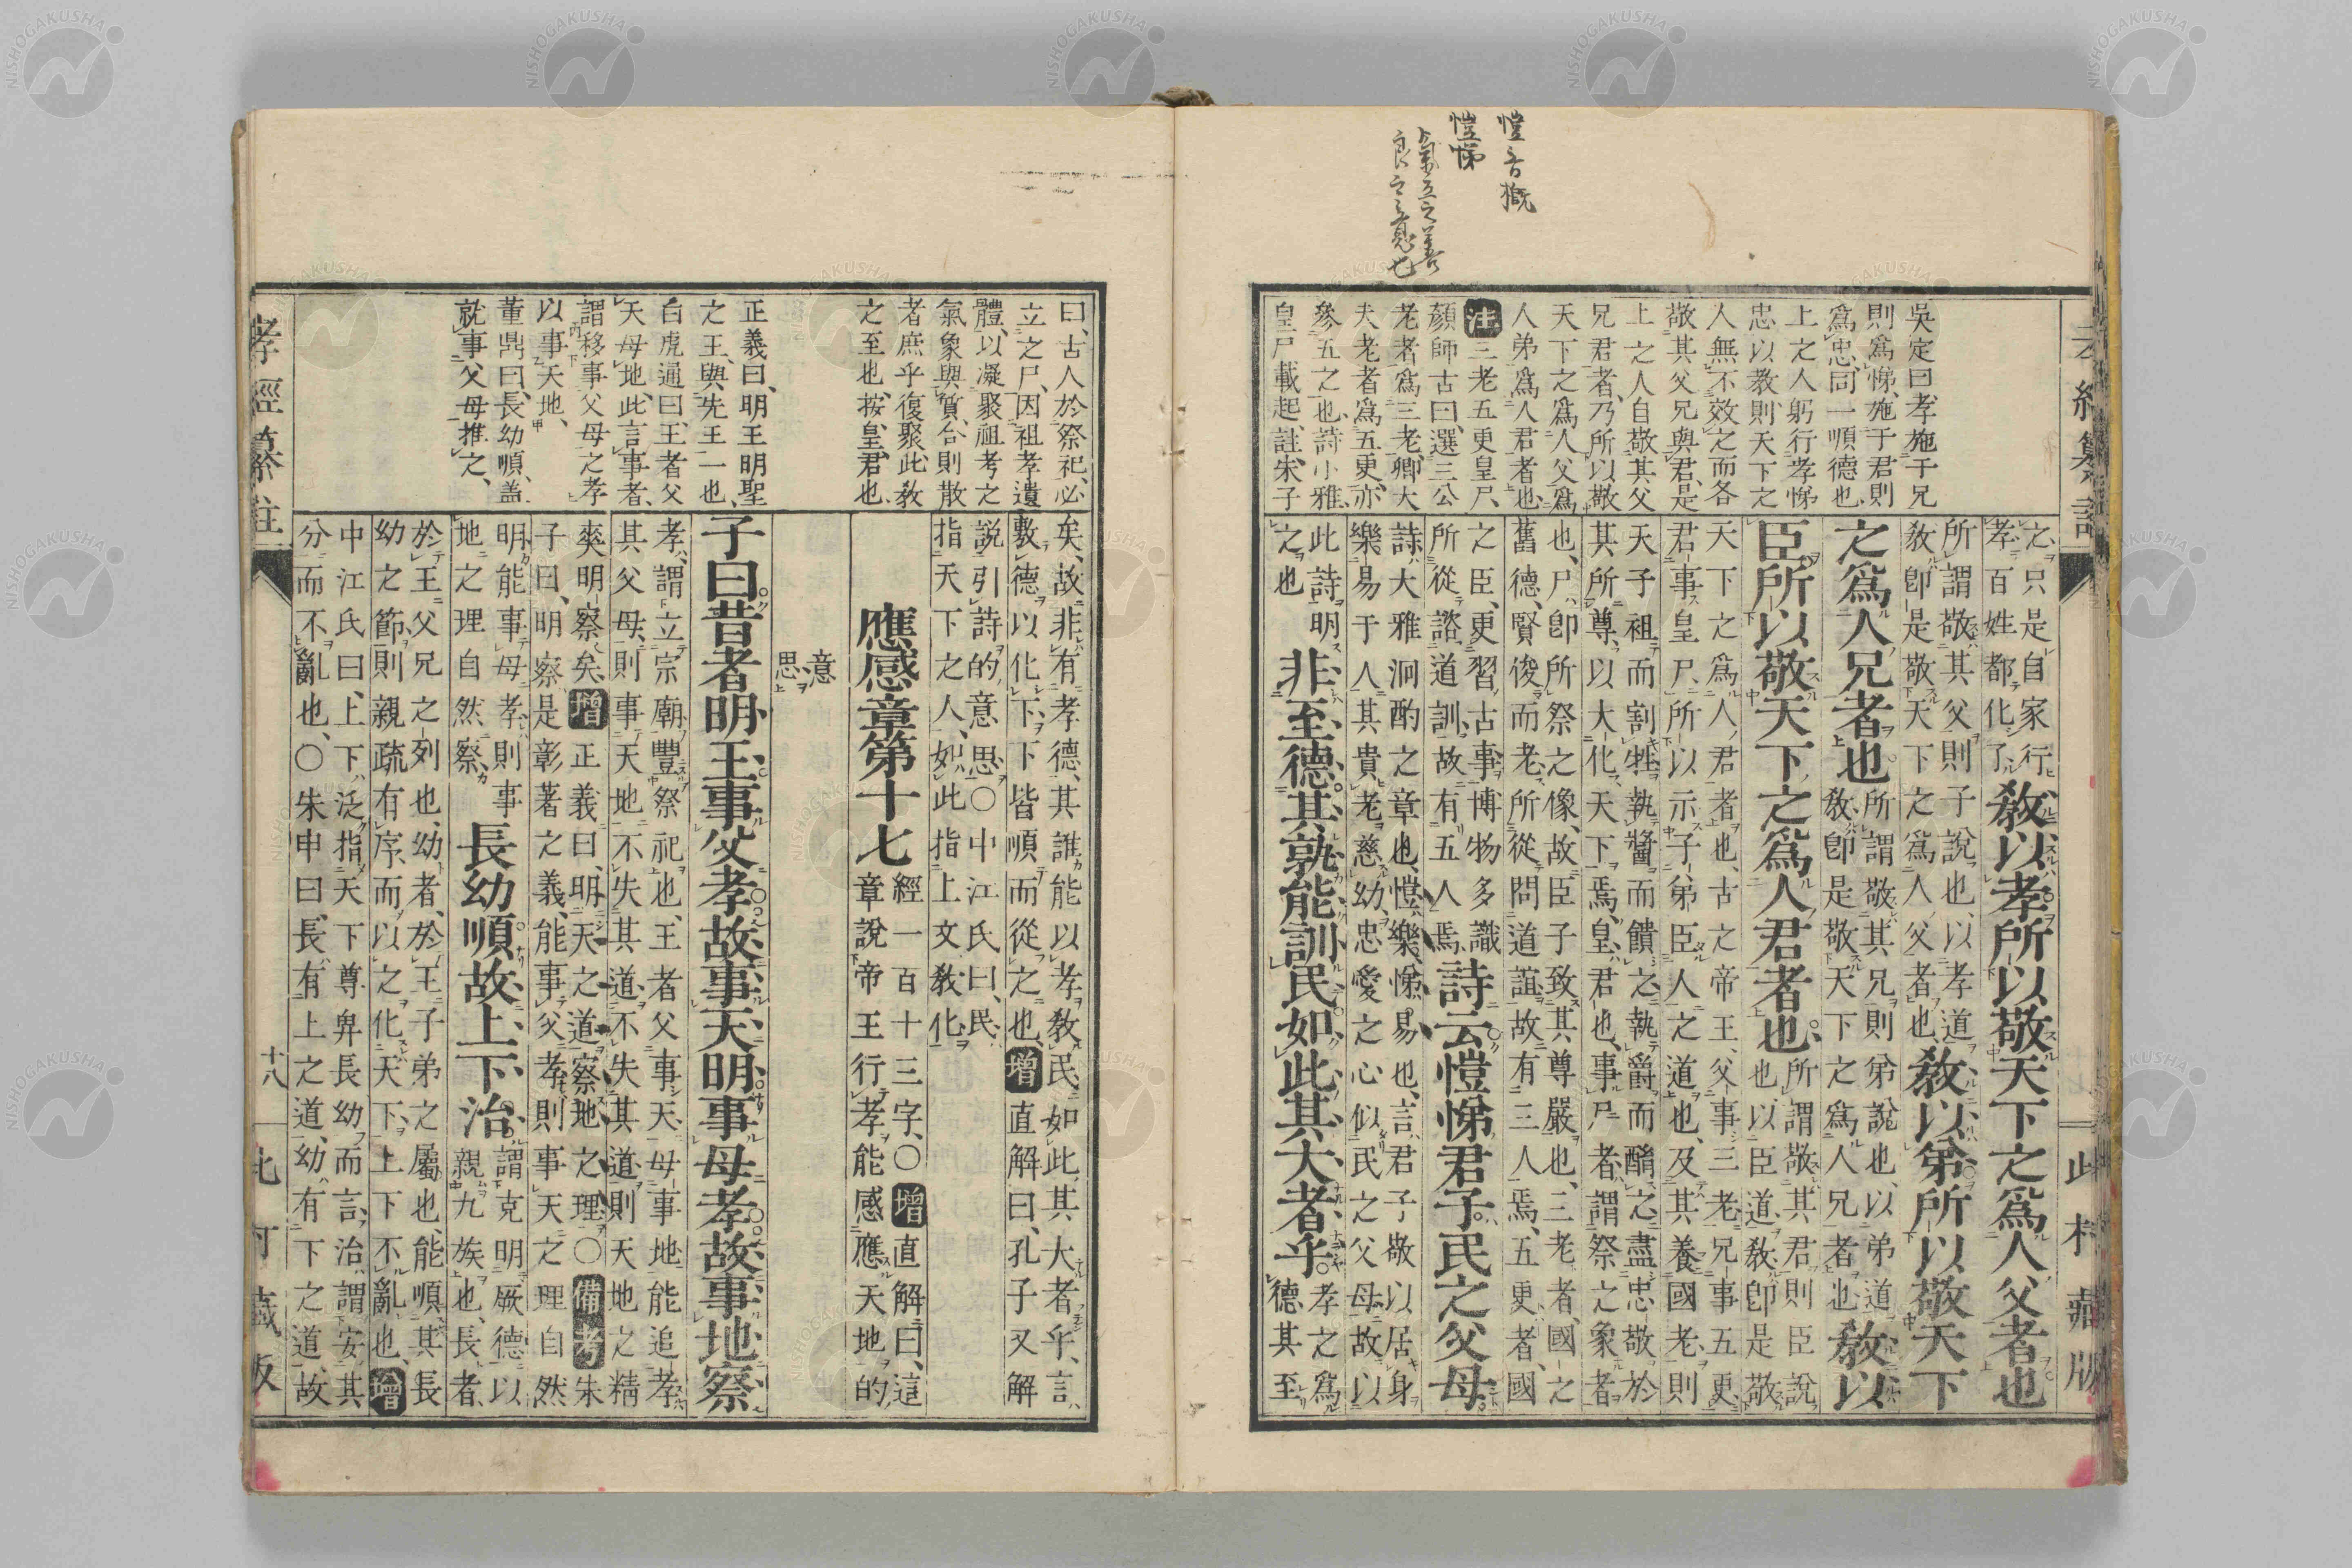 愷音概
愷悌
吳定曰、孝施于兄
則爲悌、施于君則
爲忠、同一順德也、
上之人躬行孝悌
忠以教、則天下之
人無不效之而各
敬其父兄與君、是
上之人自敬其父
兄君者、乃所以敬
天下之爲人父爲
人弟爲人君者也、
注三老五更皇尸、
顏師古曰、選三公
老者爲三老、卿大
夫老者爲五更、亦
參五之也、詩小雅、
皇尸載起、註、朱子
之只是自家行
孝百姓都化了
教以孝所以敬天下之爲人父者也
所謂敬其父則子說也、以孝道
教即是敬天下之爲人父者也、
教以弟所以敬天下
之爲人兄者也
所謂敬其兄則弟說也、以弟道
教即是敬天下之爲人兄者也
教以
臣所以敬天下之爲人君者也、
所謂敬其君則臣說
也、以臣道教即是敬
天下之爲人君者也、古之帝王、父事三老、兄事五更、
君事皇尸、所以示子弟臣人之道也、及其養國老、則
天子祖而割牲、執醬而饋之、執爵而酳之、盡忠敬於
其所尊、以大化天下焉、皇君也、事尸者、謂祭之象者
也、尸即所祭之像、故臣子致其尊嚴也、三老者、國之
舊德賢俊而老、所從問道誼、故有三人焉、五更者、國
之臣、更習古事、博物多識
所從諮道訓、故有五人焉、
詩云愷悌君子民之父母
詩大雅泂酌之章也、愷樂、悌易也、言君子敬以居身
樂易于人、其貴老慈幼、忠愛之心、似民之父母、故以
此詩明
之也
非至德、其孰能訓民如此其大者乎。
孝之爲
德其至
云經纂註
此村藏版
曰、古人於祭祀、必
立之尸、因祖考遺
體、以凝聚祖考之
氣、氣象與質合則散
者庶乎復聚、此敎
之至也、按、皇、君也、
正義曰、明王明聖
之王、與先王一也、
白虎通曰、王者父
天母地、此言事者、
謂移事父母之孝
以事天地、
董鼎曰、長幼順、蓋
就事父母推之、
矣、故非有孝德、其誰能以孝敎民如此其大者乎、言
敷德以化下、下皆順而從之也、增直解曰、孔子又解
說引詩的意思、○中江氏曰、民、
指天下之人、如此指上文敎化
應感章第十七
經一百十三字、○增直解曰、這
章說帝王行孝能感應天地的
意
思
子曰昔者明王事父孝故事天明事母孝故事地察
孝、謂立宗廟豐祭祀也、王者父事天、母事地、能追孝
其父母、則事天地、不失其道、不失其道、則天地之精
爽明察矣、增正義曰、明天之道、察地之理、○備考朱
子曰、明察是彰著之義、能事父孝、則事天之理自然
明、能事母孝、則事
地之理自然察、
長幼順、故上下治、
謂克明厥德以
親九族也、長者、
於王父兄之列也、幼者、於王子弟之屬也、能順其長
幼之節、則親疏有序、而以之化天下、上下不亂也、增
中江氏曰、上下、泛指天下尊卑長幼而言、治、謂安其
分而不亂也、○朱申曰、長有上之道、幼有下之道、故
孝經纂註
十八
此村藏版